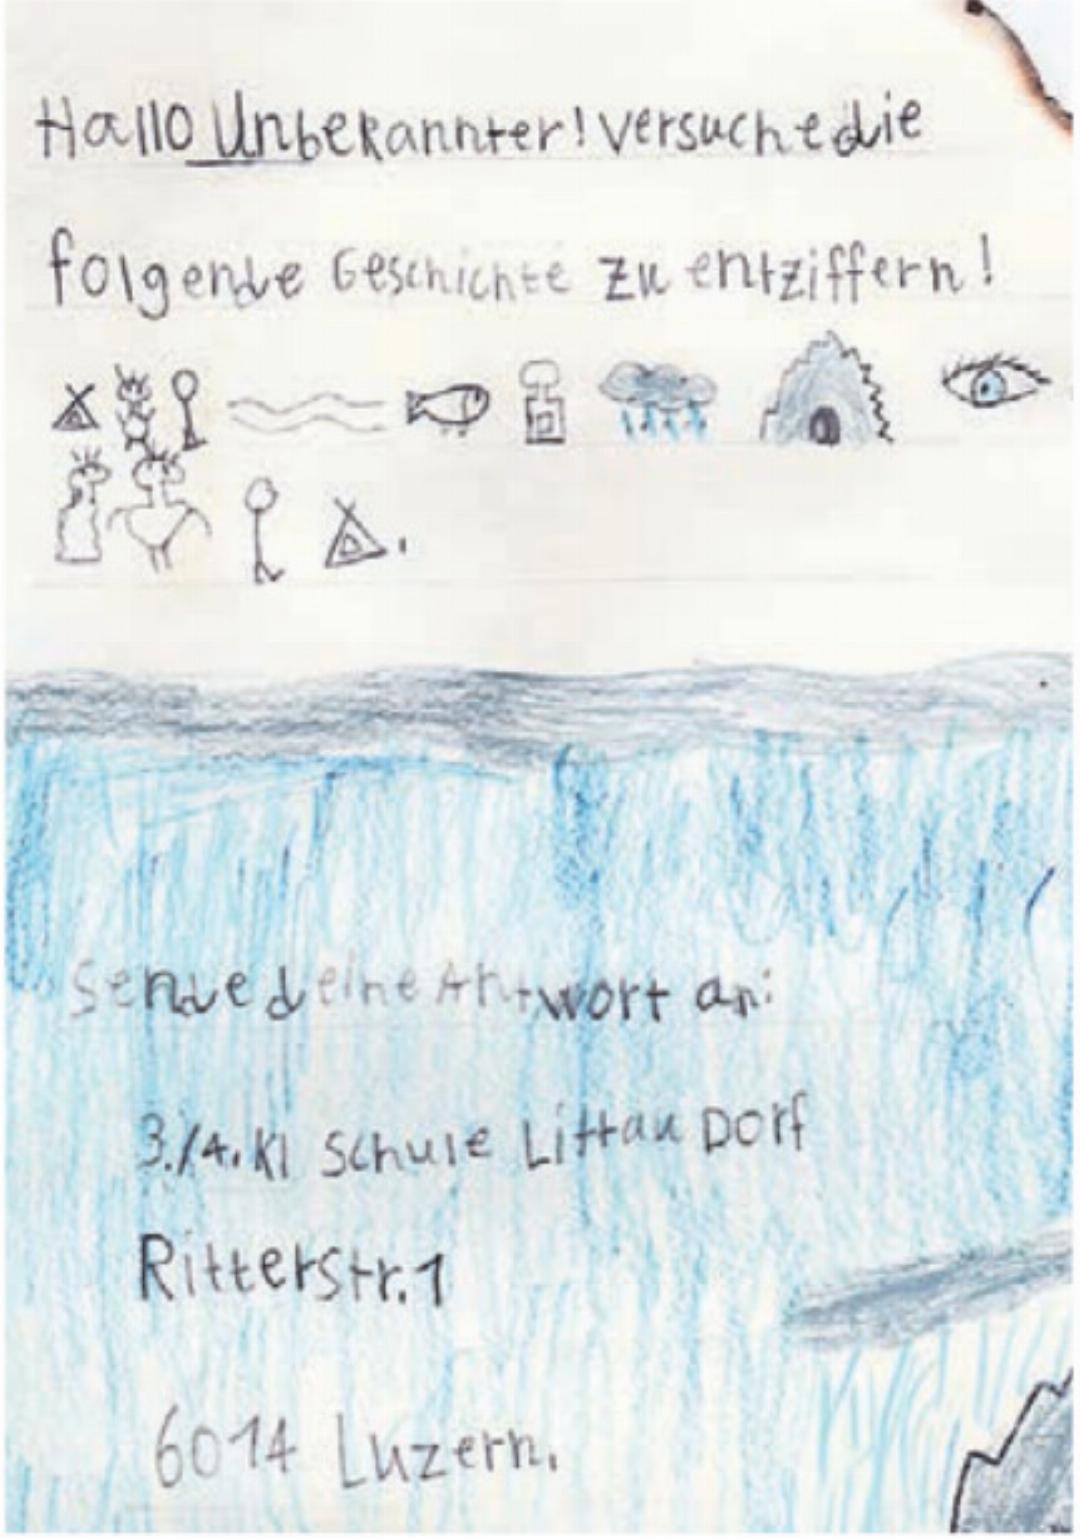 Hallo Unbekannter! versuche die
folgende Geschichte zu entziffern!
sende deine Antwort an:
3./4. Kl Schule Littau Dorf
Ritterstr. 1
6014 Luzern.